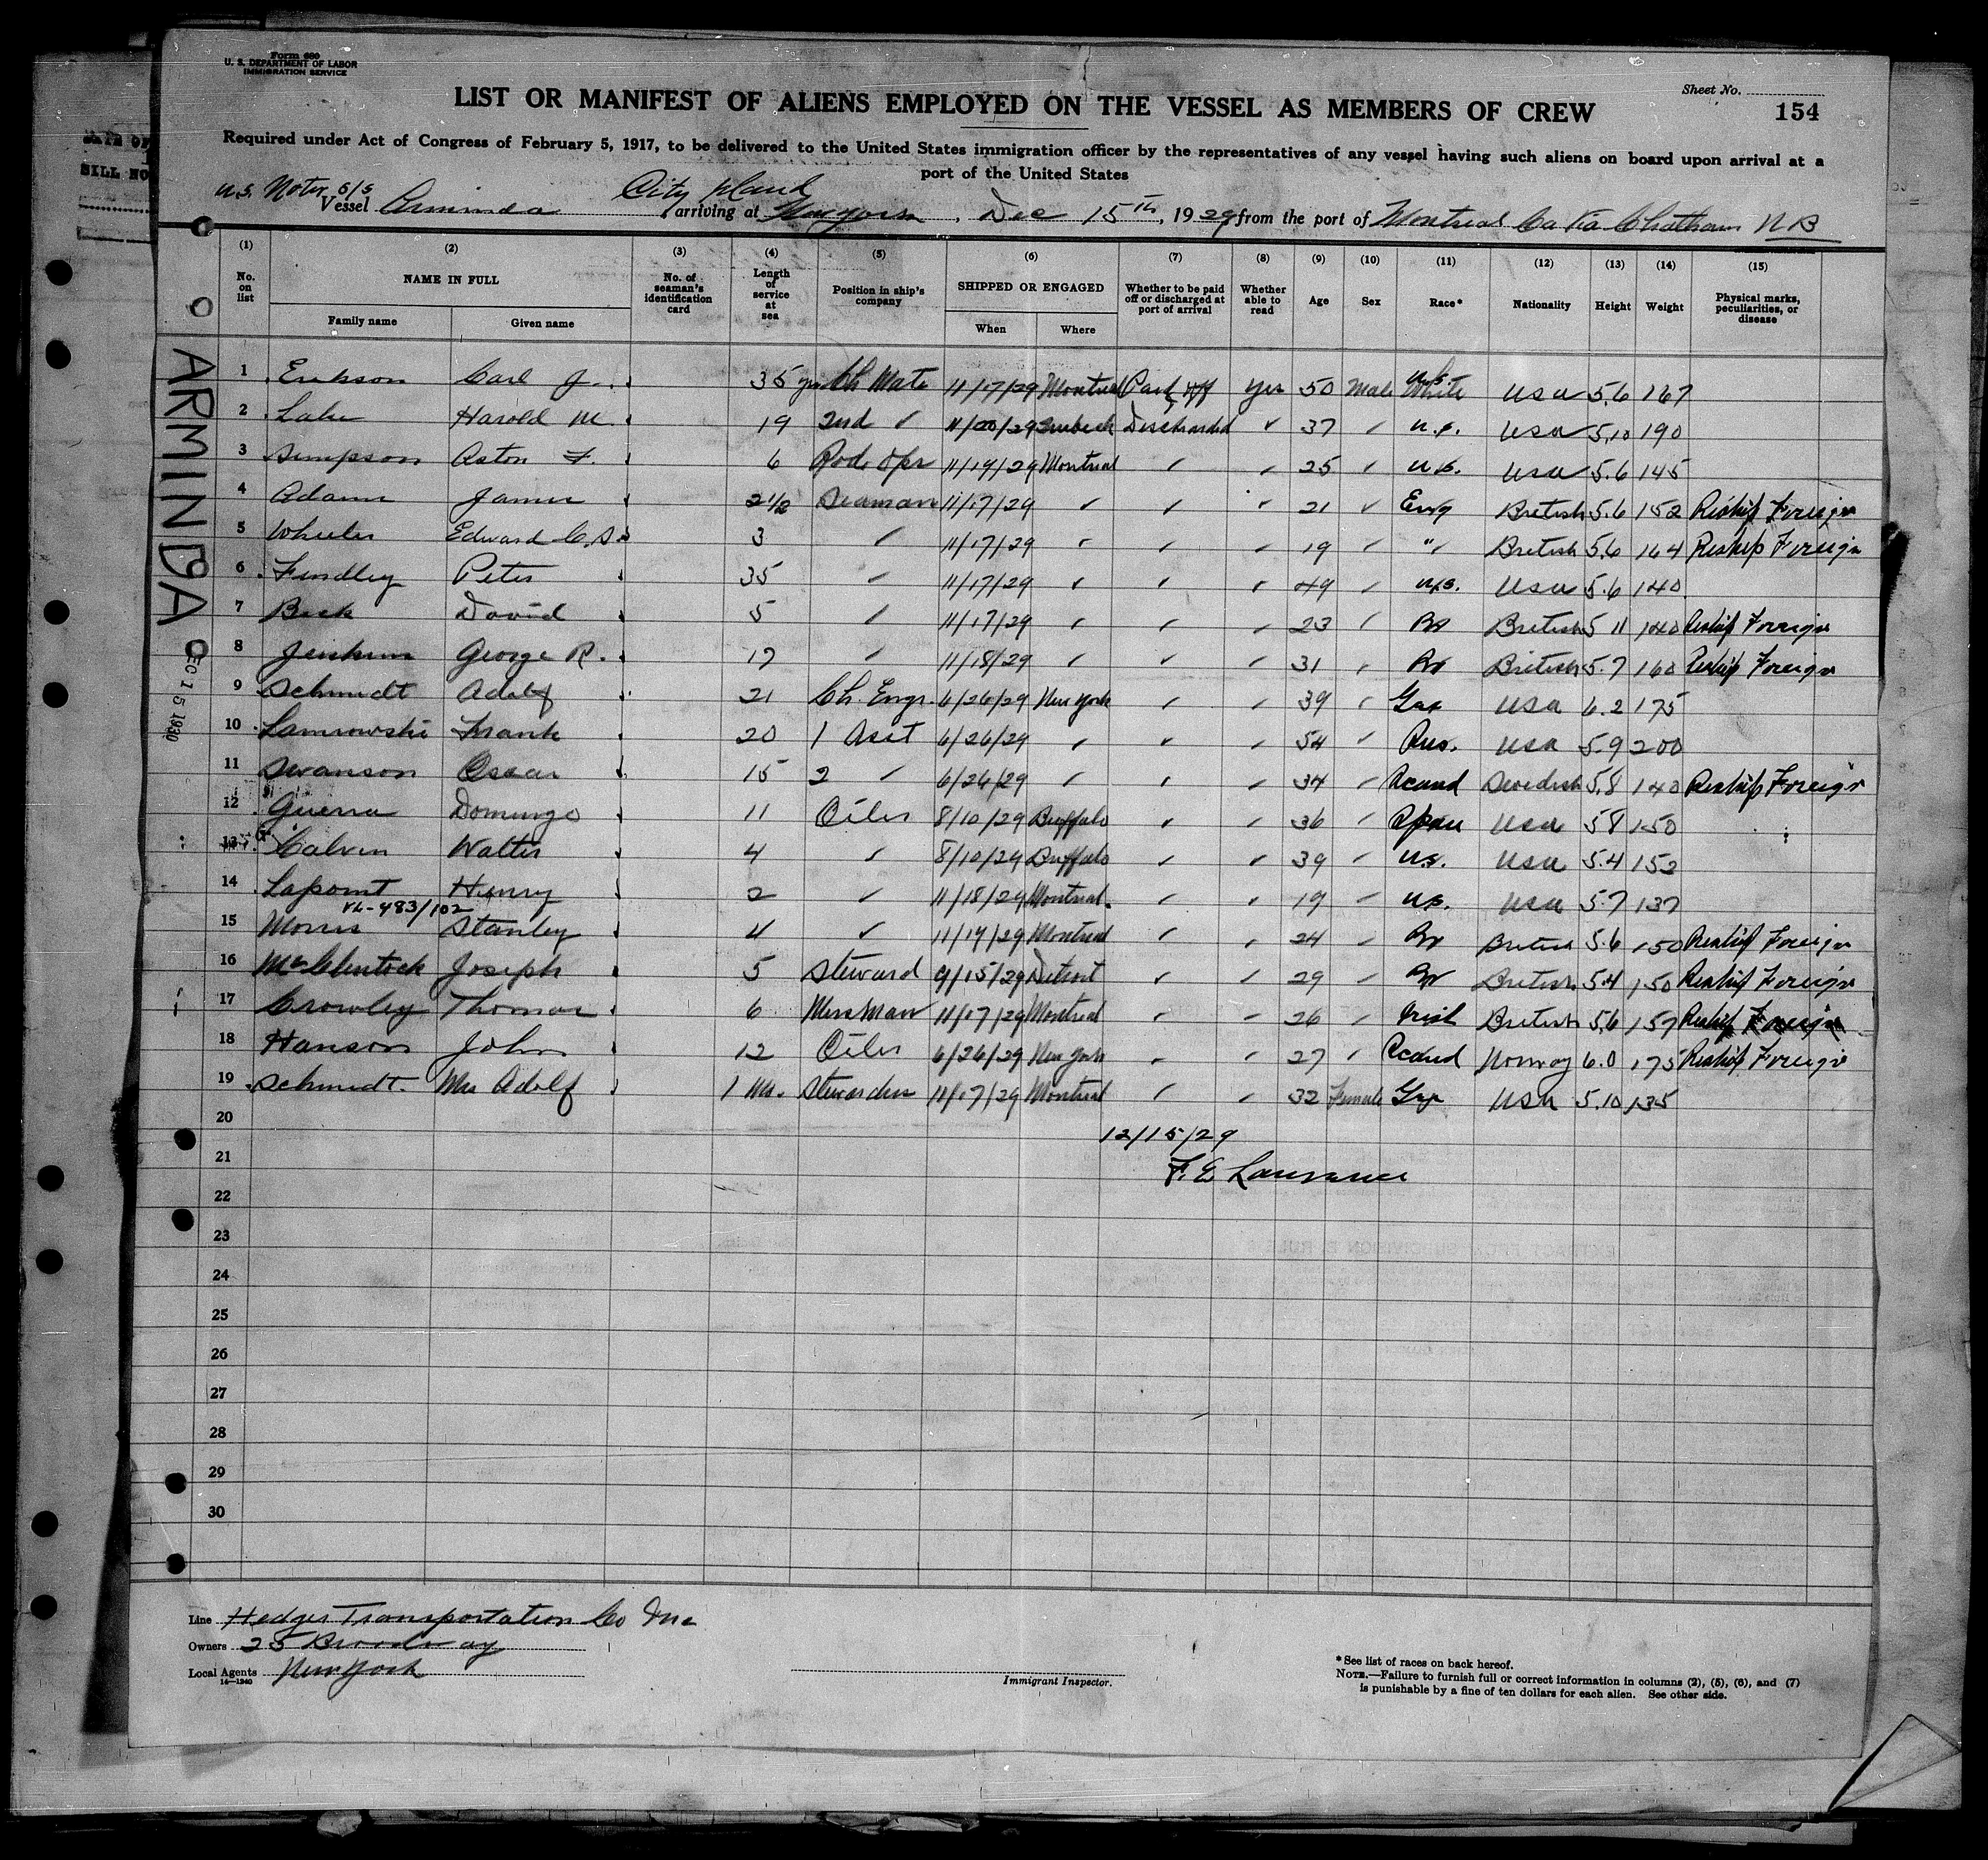 Form 680
U. S. DEPARTMENT OF LABOR
IMMIGRATION SERVICE
Sheet No.
154
LIST OR MANIFEST OF ALIENS EMPLOYED ON THE VESSEL AS MEMBERS OF CREW
Required under Act of Congress of February 5, 1917, to be delivered to the United States immigration officer by the representatives of any vessel having such aliens on board upon arrival at a
port of the United States
U.S. Motor S/S City Island
Vessel Arminda arriving at New York, Dec 15th, 1929 from the port of Montreal Ca Via Chatham N B
(1) (2) (3) (4) (5) (6) (7) (8) (9) (10) (11) (12) (13) (14) (15)
No. on list NAME IN FULL No. of seaman's identification card Length of service at sea Position in ship's company SHIPPED OR ENGAGED Whether to be paid off or discharged at port of arrival Whether able to read Age Sex Race* Nationality Height Weight Physical marks, peculiarities, or disease
Family name Given name When Where
1 Erikson Carl J. 35 yrs Ch Mate 11/17/29 Montreal Paid Off Yes 50 Male White USA 5.6 167
2 Harold M. 19 2nd " 11/20/29 Discharged " 37 " U.S. USA 5.10 190
3 Simpson Aston F. 6 Rado Opr 11/19/29 Montreal " " 25 " U.S. USA 5.6 145
4 Adams James 2 1/2 Seaman 11/17/29 " " " 21 " Eng British 5.6 152 Reship Foreign
5 Wheeler Edward C.S. 3 " 11/17/29 " " " 19 " " British 5.6 164 Reship Foreign
6 Findley Peter 35 " 11/17/29 " " " 49 " U.S. USA 5.6 140
7 Beck David 5 " 11/17/29 " " " 23 " Br British 5 11 140 Reship Foreign
8 Jenkins George R. 17 " 11/18/29 " " " 31 " Br British 5.7 160 Reship Foreign
9 Schmidt Adolf 21 Ch. Engr. 6/26/29 New York " " 39 " Ger USA 6.2 175
10 Frank 20 1 Asst 6/26/29 " " " 54 " Rus. USA 5.9 200
11 Swanson Oscar 15 2 " 6/26/29 " " " 34 " Scand Swedish 5.8 140 Reship Foreign
12 Guerra Domingo 11 Oiler 8/10/29 Buffalo " " 36 " Span USA 5 8 150
13 Calvin Walter 4 " 8/10/29 Buffalo " " 39 " U.S. USA 5.4 152
14 Lapoint Henry 2 " 11/18/29 Montreal " " 19 " U.S. USA 5.7 137
VL-483/102
15 Morris Stanley 4 " 11/19/29 Montreal " " 24 " Br British 5.6 150 Reship Foreign
16 McClintock Joseph 5 Steward 9/15/29 Detroit " " 29 " Br British 5.4 150 Reship Foreign
17 Crowley Thomas 6 Messman 11/17/29 Montreal " " 26 " Irish British 5.6 157 Reship Foreign
18 Hanson John 12 Oiler 6/26/29 New York " " 27 " Scand Norway 6.0 175 Reship Foreign
19 Schmidt Mrs Adolf 1 Mo. Stewardess 11/17/29 Montreal " " 32 Female Ger USA 5.10 135
20
12/15/29
21
F. E. Lawrence
22
23
24
25
26
27
28
29
30
ARMINDA
DEC 15 1930
Line Hedges Transportation Co Inc
Owners 25 Broadway
Local Agents New York
14—1240
Immigrant Inspector.
* See list of races on back hereof.
NOTE.—Failure to furnish full or correct information in columns (2), (5), (6), and (7)
is punishable by a fine of ten dollars for each alien. See other side.